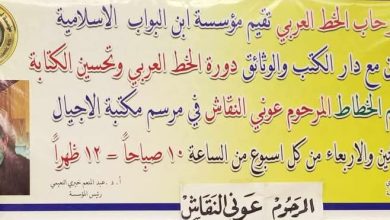 رحاب الخط العربي تقيم مؤسسة ابن البواب الاسلامية
مع دار الكتب والوثائق دورة الخط العربي وتحسين الكتابة
الخطاط المرحوم عوني النقاش في مرسم مكتبة الاجيال
والاربعاء من كل اسبوع من الساعة ١٠ صباحاً = ١٢ ظهراً
أ. د. عبد المنعم خيري النعيمي
رئيس المؤسسة
المرحوم عوني النقاش